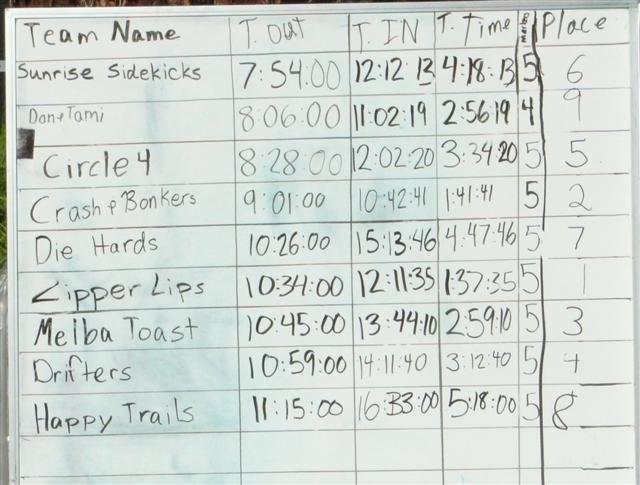 Team Name T. Out T. IN T. Time Place
Sunrise Sidekicks 7:54:00 12:12 13 4:18:13 5 6
Dan & Tami 8:06:00 11:02:19 2:56:19 4 9
Circle 4 8:28:00 12:02:20 3:34:20 5 5
Crash & Bonkers 9:01:00 10:42:41 1:41:41 5 2
Die Hards 10:26:00 15:13:46 4:47:46 5 7
Zipper Lips 10:34:00 12:11:35 1:37:35 5 1
Melba Toast 10:45:00 13:44:10 2:59:10 5 3
Drifters 10:59:00 14:11:40 3:12:40 5 4
Happy Trails 11:15:00 16:33:00 5:18:00 5 8